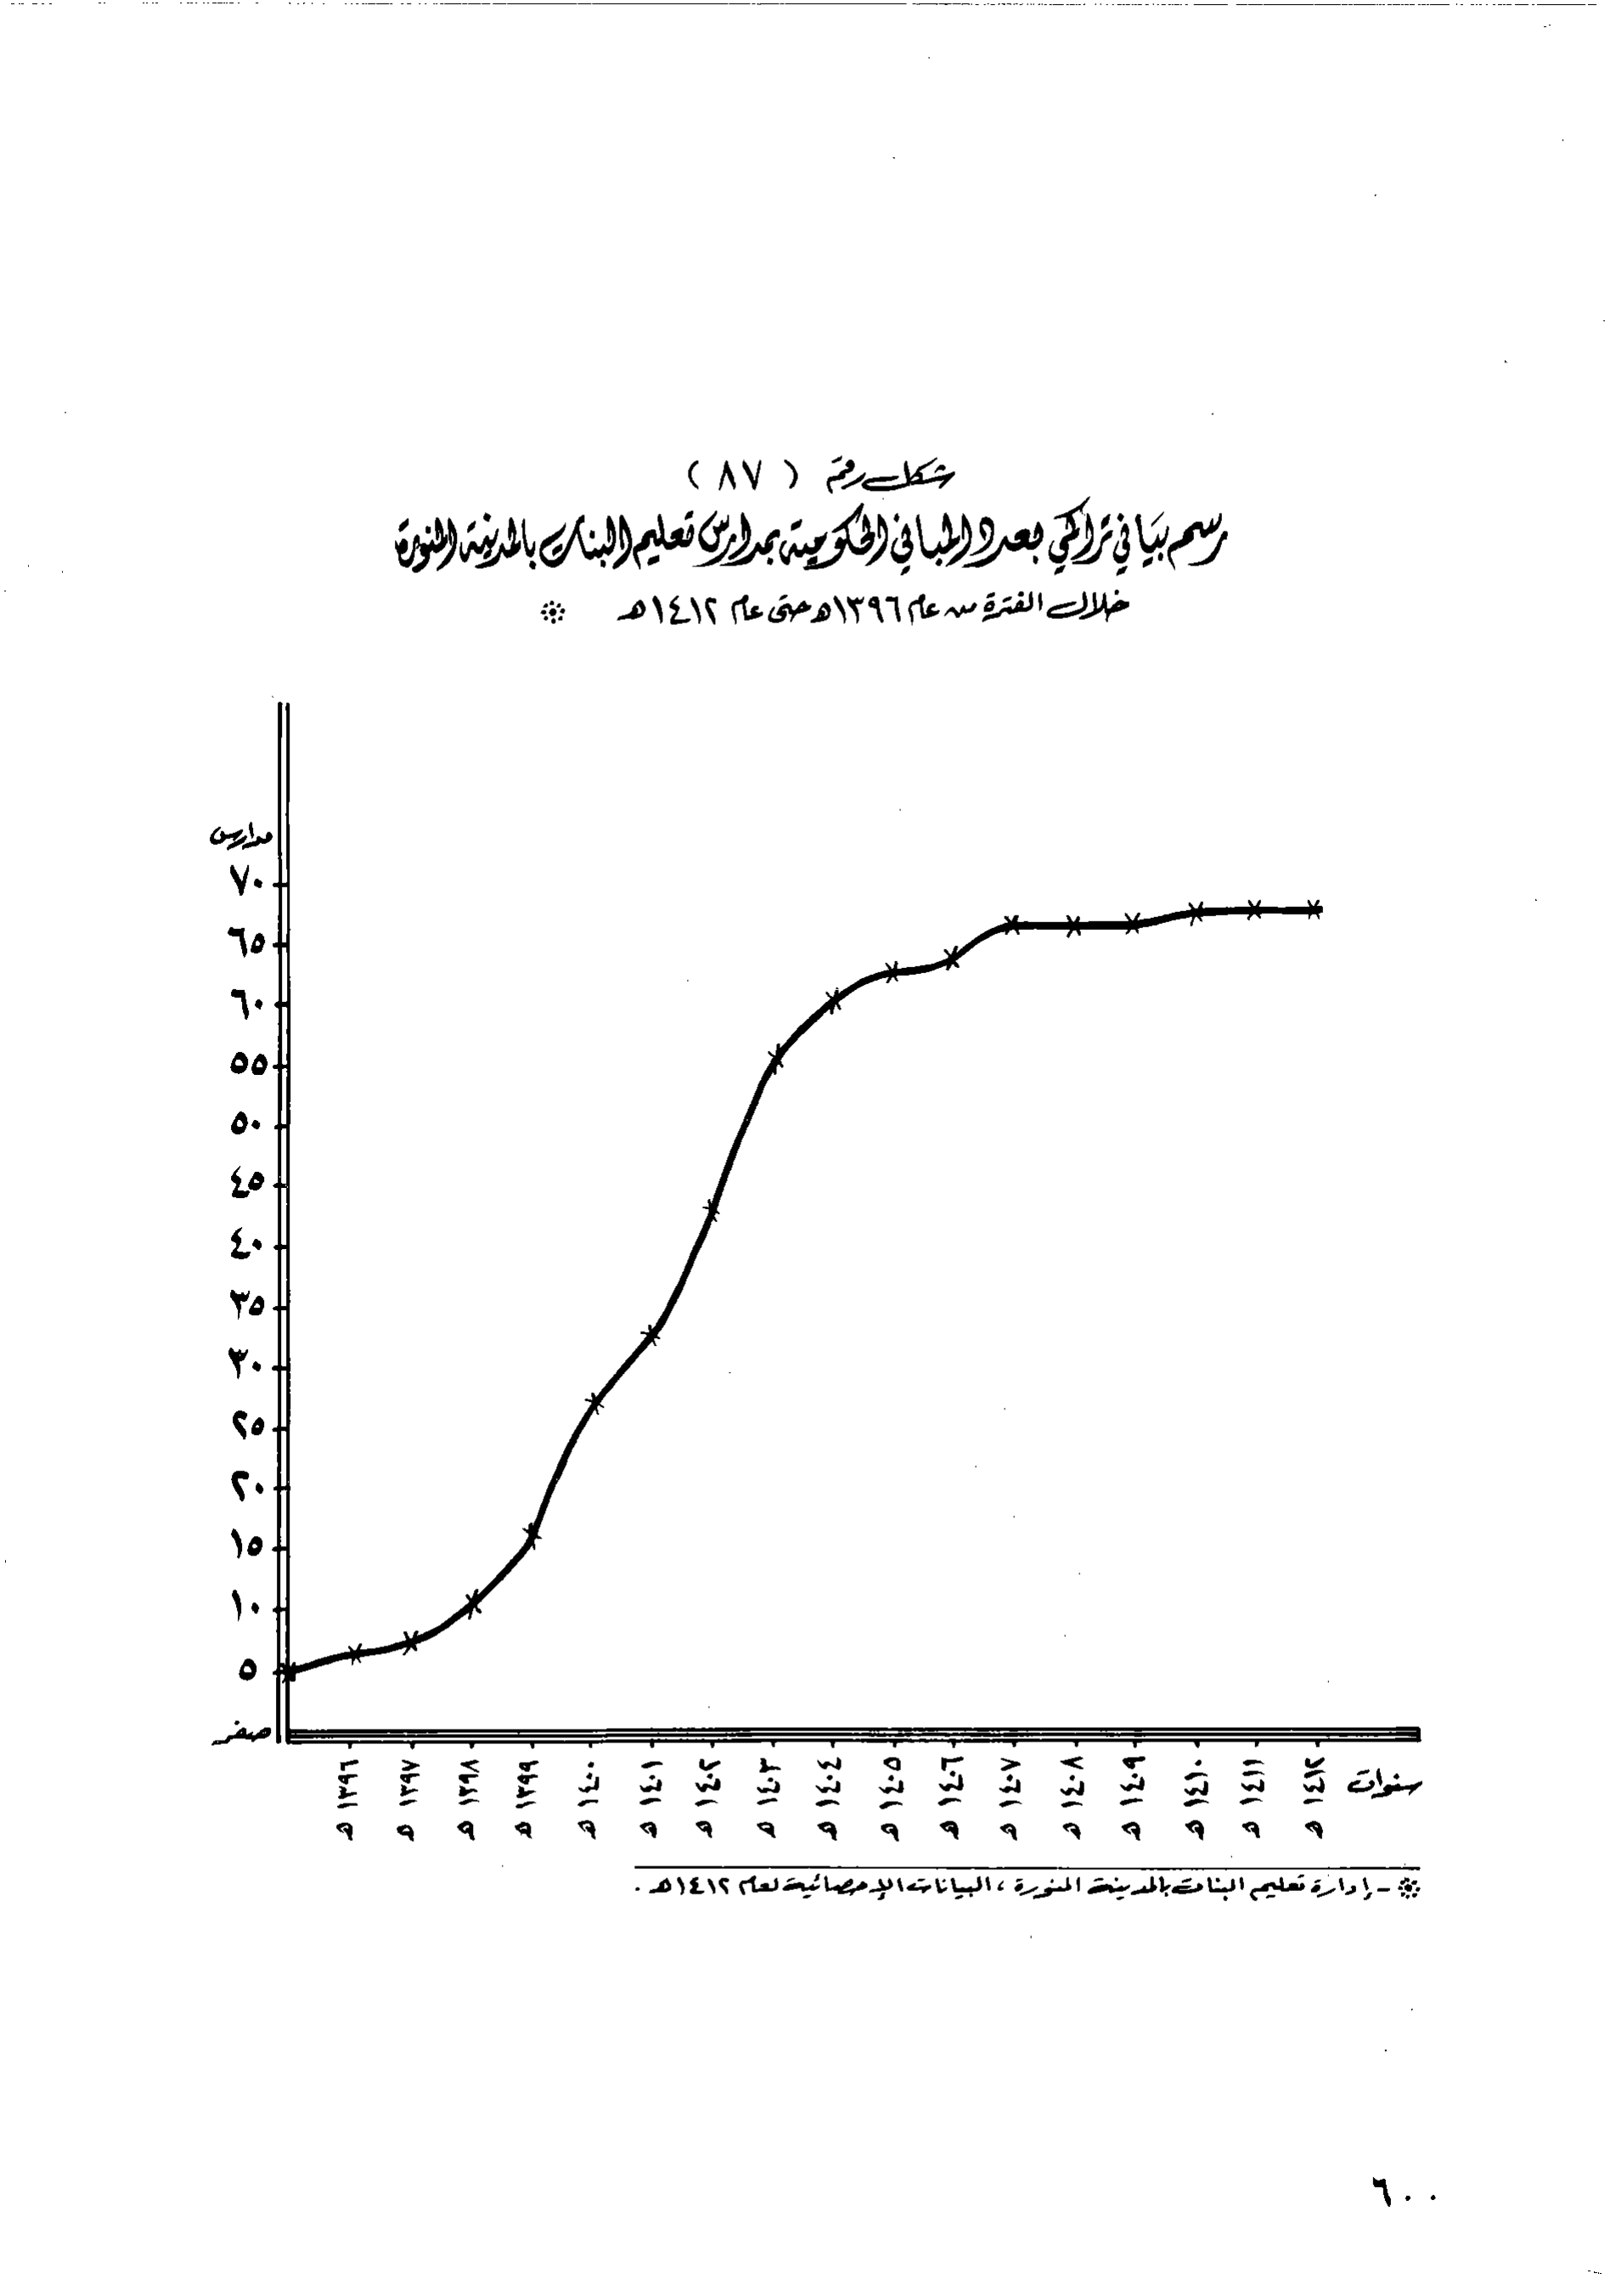 شكل رقم ( ٨٧ )
رسم بياني تراكمي بعدد المباني الحكومية بمدارس تعليم البنات بالمدينة المنورة
خلال الفترة من عام ١٣٩٦هـ حتى عام ١٤١٢هـ
مدارس
٧٠
٦٥
٦٠
٥٥
٥٠
٤٥
٤٠
٣٥
٣٠
٢٥
٢٠
١٥
١٠
٥
صفر
١٣٩٦ هـ
١٣٩٧ هـ
١٣٩٨ هـ
١٣٩٩ هـ
١٤٠٠ هـ
١٤٠١ هـ
١٤٠٢ هـ
١٤٠٣ هـ
١٤٠٤ هـ
١٤٠٥ هـ
١٤٠٦ هـ
١٤٠٧ هـ
١٤٠٨ هـ
١٤٠٩ هـ
١٤١٠ هـ
١٤١١ هـ
١٤١٢ هـ
سنوات
- إدارة تعليم البنات بالمدينة المنورة ، البيانات الإحصائية لعام ١٤١٢هـ .
٦٠٠